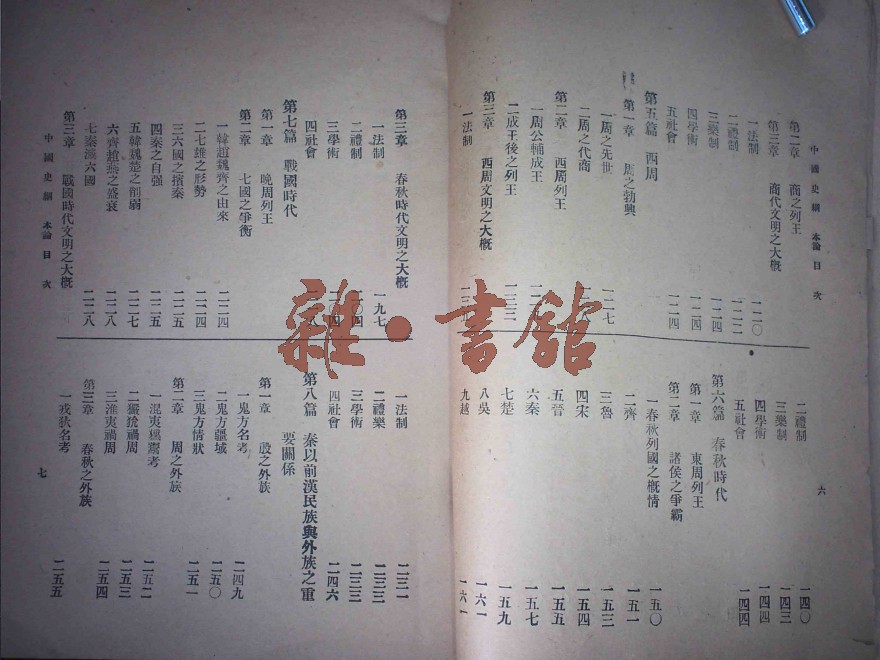 中國史綱 本論 目次
第二章 商之列王
第三章 商代文明之大概
一法制 一二〇
二禮制 一二二
三樂制 一二四
四學術 一二四
五社會 一二四
第五篇 西周
第一章 周之勃興
一周之先世 一二七
二周之代商
第二章 西周列王
一周公輔成王
二成王後之列王 一三三
第三章 西周文明之大概
一法制
二禮制 一四〇
三樂制 一四三
四學術 一四四
五社會 一四四
第六篇 春秋時代
第一章 東周列王
第二章 諸侯之爭霸
一春秋列國之概情 一五〇
二齊 一五一
三魯 一五三
四宋 一五四
五晉 一五五
六秦 一五七
七楚 一五九
八吳 一六一
九越 一六一
六
第三章 春秋時代文明之大概
一法制 一九七
二禮制 二〇四
三學術
四社會
第七篇 戰國時代
第一章 晚周列王
第二章 七國之爭衡
一韓趙魏齊之由來 二二四
二七雄之形勢 二二四
三六國之擯秦 二二五
四秦之自强 二二五
五韓魏楚之削弱 二二七
六齊趙燕之盛衰 二二八
七秦滅六國 二二八
第三章 戰國時代文明之大概
中國史綱 本論 目次
一法制 二三一
二禮樂 二三三
三學術 二三三
四社會 二四六
第八篇 秦以前漢民族與外族之重
要關係
第一章 殷之外族
一鬼方名考 二四九
二鬼方疆域 二五〇
三鬼方情狀 二五一
第二章 周之外族
一混夷獯鬻考 二五二
二玁狁禍周 二五三
三淮夷禍周 二五四
第三章 春秋之外族
一戎狄名考 二五五
七
雜·書館